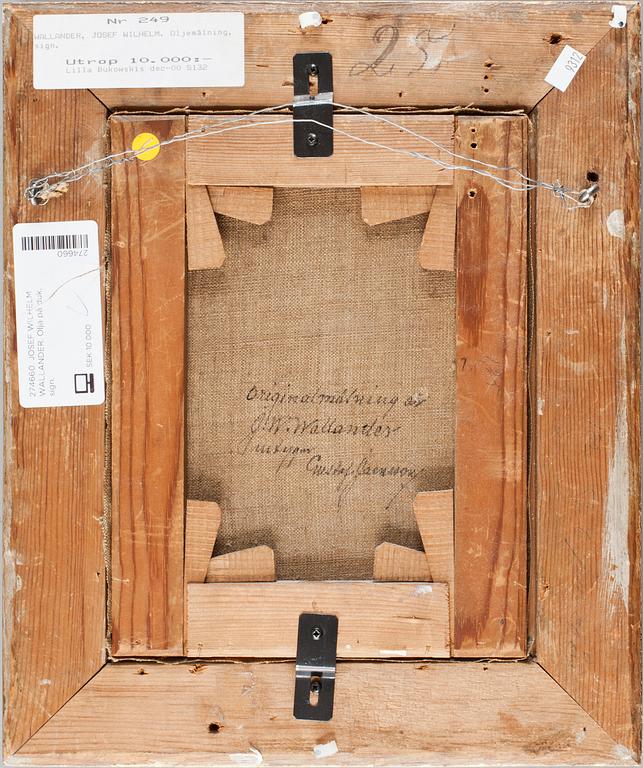 Nr 249
WALLANDER, JOSEF WILHELM. Oljemålning,
sign.
Utrop 10.000:-
Lilla Bukowskis dec-00 S132
25
9312
274660
274660. JOSEF WILHELM
WALLANDER. Olja på duk,
sign.
SEK 10 000
Originalmålning av
J.W. Wallander
Gustaf